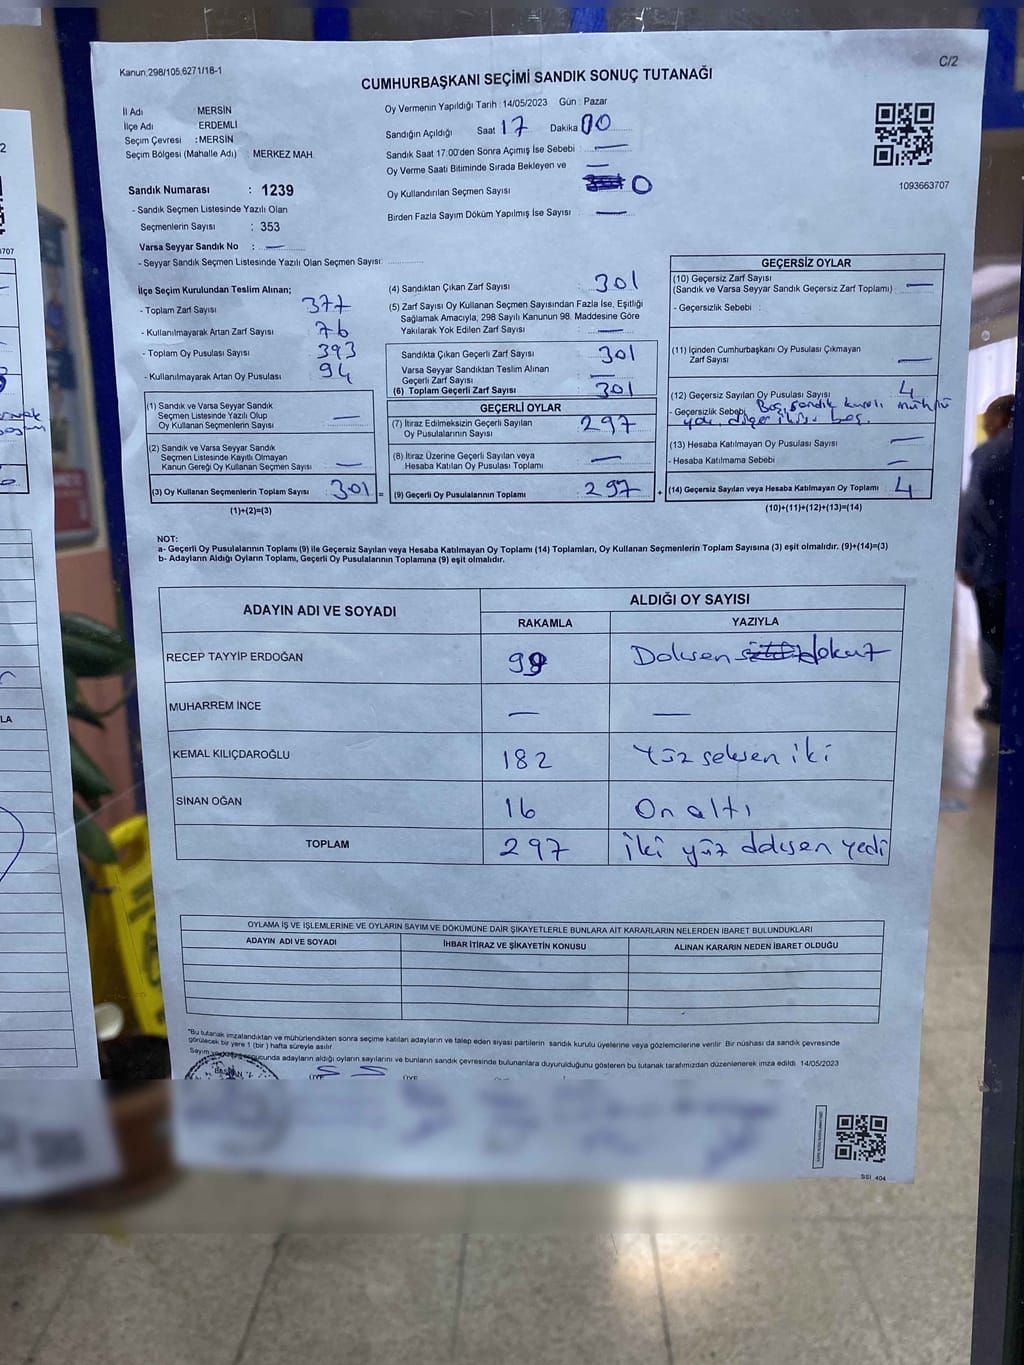 C/2
Kanun;298/105,6271/18-1
CUMHURBAŞKANI SEÇİMİ SANDIK SONUÇ TUTANAĞI
İl Adı MERSİN
İlçe Adı ERDEMLİ
Seçim Çevresi : MERSİN
Seçim Bölgesi (Mahalle Adı) : MERKEZ MAH.
Sandık Numarası : 1239
- Sandık Seçmen Listesinde Yazılı Olan
Seçmenlerin Sayısı : 353
Varsa Seyyar Sandık No : —
- Seyyar Sandık Seçmen Listesinde Yazılı Olan Seçmen Sayısı:
Oy Vermenin Yapıldığı Tarih : 14/05/2023 Gün : Pazar
Sandığın Açıldığı Saat 17 Dakika 00
Sandık Saat 17.00'den Sonra Açımış İse Sebebi : —
Oy Verme Saati Bitiminde Sırada Bekleyen ve —
Oy Kullandırılan Seçmen Sayısı 0
Birden Fazla Sayım Döküm Yapılmış İse Sayısı : —
1093663707
İlçe Seçim Kurulundan Teslim Alınan;
- Toplam Zarf Sayısı 377
- Kullanılmayarak Artan Zarf Sayısı 76
- Toplam Oy Pusulası Sayısı 393
- Kullanılmayarak Artan Oy Pusulası 94
(1) Sandık ve Varsa Seyyar Sandık
Seçmen Listesinde Yazılı Olup
Oy Kullanan Seçmenlerin Sayısı —
(2) Sandık ve Varsa Seyyar Sandık
Seçmen Listesinde Kayıtlı Olmayan
Kanun Gereği Oy Kullanan Seçmen Sayısı —
(3) Oy Kullanan Seçmenlerin Toplam Sayısı 301 =
(1)+(2)=(3)
(4) Sandıktan Çıkan Zarf Sayısı 301
(5) Zarf Sayısı Oy Kullanan Seçmen Sayısından Fazla İse, Eşitliği
Sağlamak Amacıyla, 298 Sayılı Kanunun 98. Maddesine Göre
Yakılarak Yok Edilen Zarf Sayısı : —
Sandıkta Çıkan Geçerli Zarf Sayısı 301
Varsa Seyyar Sandıktan Teslim Alınan
Geçerli Zarf Sayısı —
(6) Toplam Geçerli Zarf Sayısı 301
GEÇERLİ OYLAR
(7) İtiraz Edilmeksizin Geçerli Sayılan
Oy Pusulalarının Sayısı 297
(8) İtiraz Üzerine Geçerli Sayılan veya
Hesaba Katılan Oy Pusulası Toplamı —
(9) Geçerli Oy Pusulalarının Toplamı : 297 +
GEÇERSİZ OYLAR
(10) Geçersiz Zarf Sayısı
(Sandık ve Varsa Seyyar Sandık Geçersiz Zarf Toplamı) —
- Geçersizlik Sebebi :
(11) İçinden Cumhurbaşkanı Oy Pusulası Çıkmayan
Zarf Sayısı —
(12) Geçersiz Sayılan Oy Pusulası Sayısı 4
- Geçersizlik Sebebi Boş, sandık kurulı mührü
yok, diğer ikisi boş.
(13) Hesaba Katılmayan Oy Pusulası Sayısı —
- Hesaba Katılmama Sebebi —
(14) Geçersiz Sayılan veya Hesaba Katılmayan Oy Toplamı : 4
(10)+(11)+(12)+(13)=(14)
NOT:
a- Geçerli Oy Pusulalarının Toplamı (9) ile Geçersiz Sayılan veya Hesaba Katılmayan Oy Toplamı (14) Toplamları, Oy Kullanan Seçmenlerin Toplam Sayısına (3) eşit olmalıdır. (9)+(14)=(3)
b- Adayların Aldığı Oyların Toplamı, Geçerli Oy Pusulalarının Toplamına (9) eşit olmalıdır.
ADAYIN ADI VE SOYADI ALDIĞI OY SAYISI
RAKAMLA YAZIYLA
RECEP TAYYİP ERDOĞAN 99 Doksen dokuz
MUHARREM İNCE — —
KEMAL KILIÇDAROĞLU 182 Yüz seksen iki
SİNAN OĞAN 16 On altı
TOPLAM 297 İki yüz doksen yedi
OYLAMA İŞ VE İŞLEMLERİNE VE OYLARIN SAYIM VE DÖKÜMÜNE DAİR ŞİKAYETLERLE BUNLARA AİT KARARLARIN NELERDEN İBARET BULUNDUKLARI
ADAYIN ADI VE SOYADI İHBAR İTİRAZ VE ŞİKAYETİN KONUSU ALINAN KARARIN NEDEN İBARET OLDUĞU
"Bu tutanak imzalandıktan ve mühürlendikten sonra seçime katılan adayların ve talep eden siyasi partilerin sandık kurulu üyelerine veya gözlemcilerine verilir. Bir nüshası da sandık çevresinde
görülecek bir yere 1 (bir) hafta süreyle asılır.
Sayım sonucunda adayların aldığı oyların sayılarını ve bunların sandık çevresinde bulunanlara duyurulduğunu gösteren bu tutanak tarafımızdan düzenlenerek imza edildi. 14/05/2023
BAŞKAN ÜYE ÜYE
SSI 404